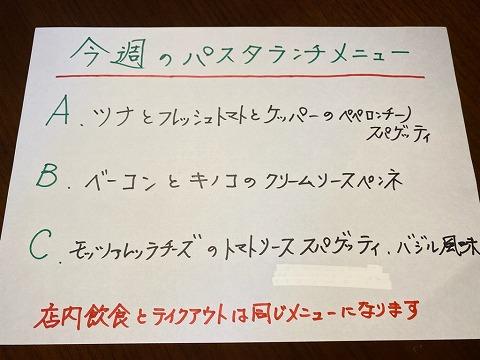 今週のパスタランチメニュー
A. ツナとフレッシュトマトとケッパーのペペロンチーノ
スパゲッティ
B. ベーコンとキノコのクリームソースペンネ
C. モッツァレッラチーズのトマトソース スパゲッティ、バジル風味
店内飲食とテイクアウトは同じメニューになります